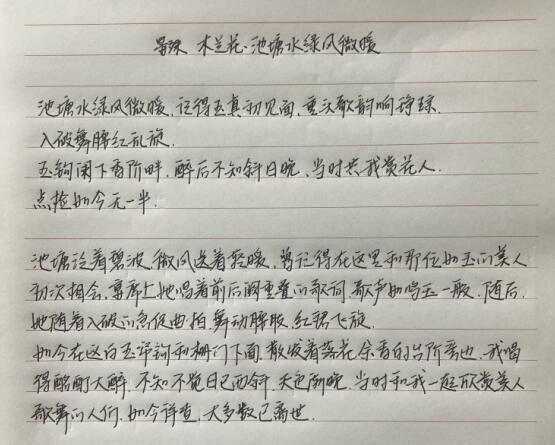 晏殊 木兰花·池塘水绿风微暖
池塘水绿风微暖,记得玉真初见面,重头歌韵响琤琮,
入破舞腰红乱旋.
玉钩阑下香阶畔,醉后不知斜日晚,当时共我赏花人,
点检如今无一半.
池塘泛着碧波,微风送着轻暖,曾记得在这里和那位如玉的美人
初次相会,宴席上她唱着前后阕重叠的歌词,歌声如鸣玉一般.随后,
她随着入破的急促曲拍,舞动腰肢,红裙飞旋.
如今在这白玉帘钩和栅门下面,散发着落花余香的台阶旁边,我喝
得酩酊大醉,不知不觉日已西斜,天色渐晚.当时和我一起欣赏美人
歌舞的人们,如今详查,大多数已离世.